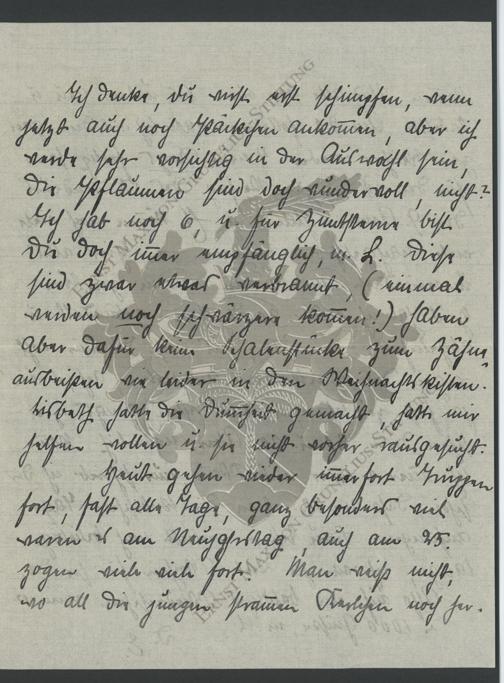 Ich denke, du wirst erst schimpfen, wenn
jetzt auch noch Päckchen ankom̄en, aber ich
werde sehr vorsichtig in der Auswahl sein,
die Pflaumen sind doch wundervoll, nicht?
Ich hab noch 6, u. für Zimtsterne bist
Du doch im̄er empfänglich, m. L. Diese
sind zwar etwas verbrannt, (einmal
werden noch schwärzere kom̄en!) haben
aber dafür keine Schalenstücke zum Zähne
ausbeißen wie leider in den Weihnachtskisten.
Lisbeth hatte die Dum̄heit gemacht, hatte mir
helfen wollen u. sie nicht vorher rausgesucht.
Heut gehen wieder im̄erfort Truppen
fort, fast alle Tage, ganz besonders viel
waren es am Neujahrstag, auch am 25.
zogen viele viele fort. Man weiß nicht,
wo all die jungen stram̄en Kerlchen noch her-
ERNST MAX VON GRUNELIUS-STIFTUNG